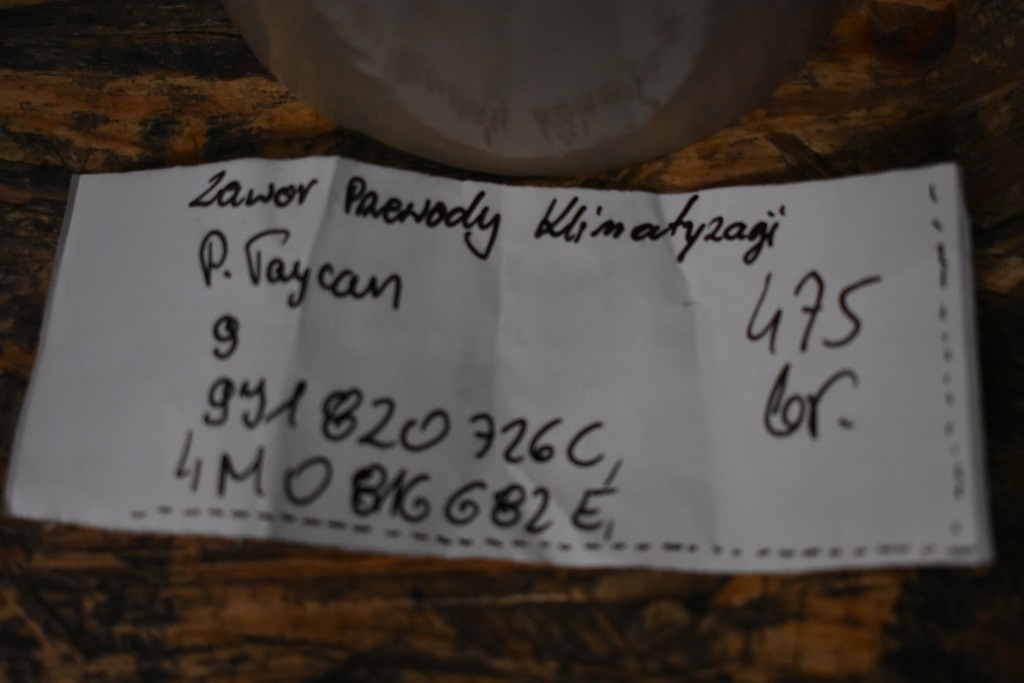 Zawor Przewody Klimatyzacji
P. Taycan
475
9
br.
9Y1 820 726C,
4M0 816 682 E,